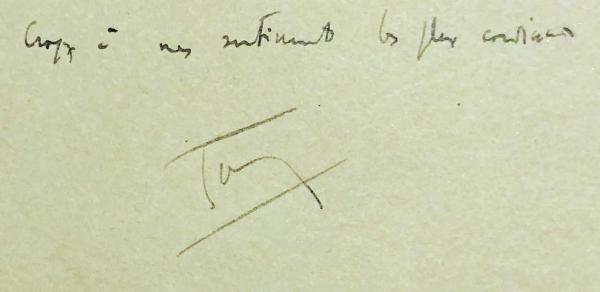 Croyez à mes sentiments les plus cordiaux